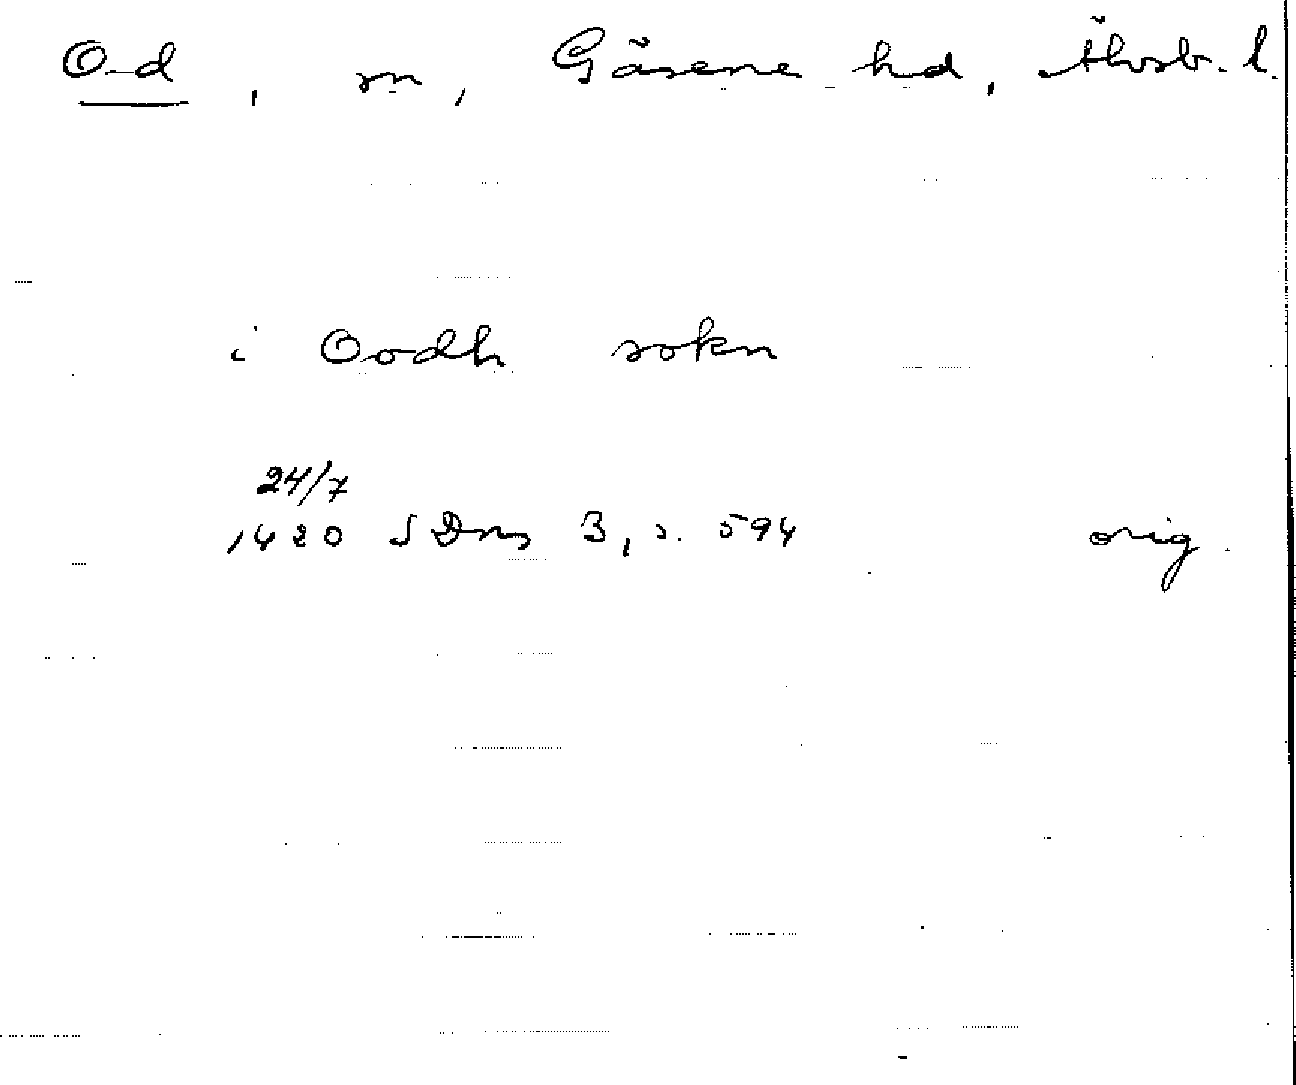 Od, sn, Gäsene hd, Älvsb. l.
i Oodh sokn
24/7
1420 SDns 3, s. 594 orig.